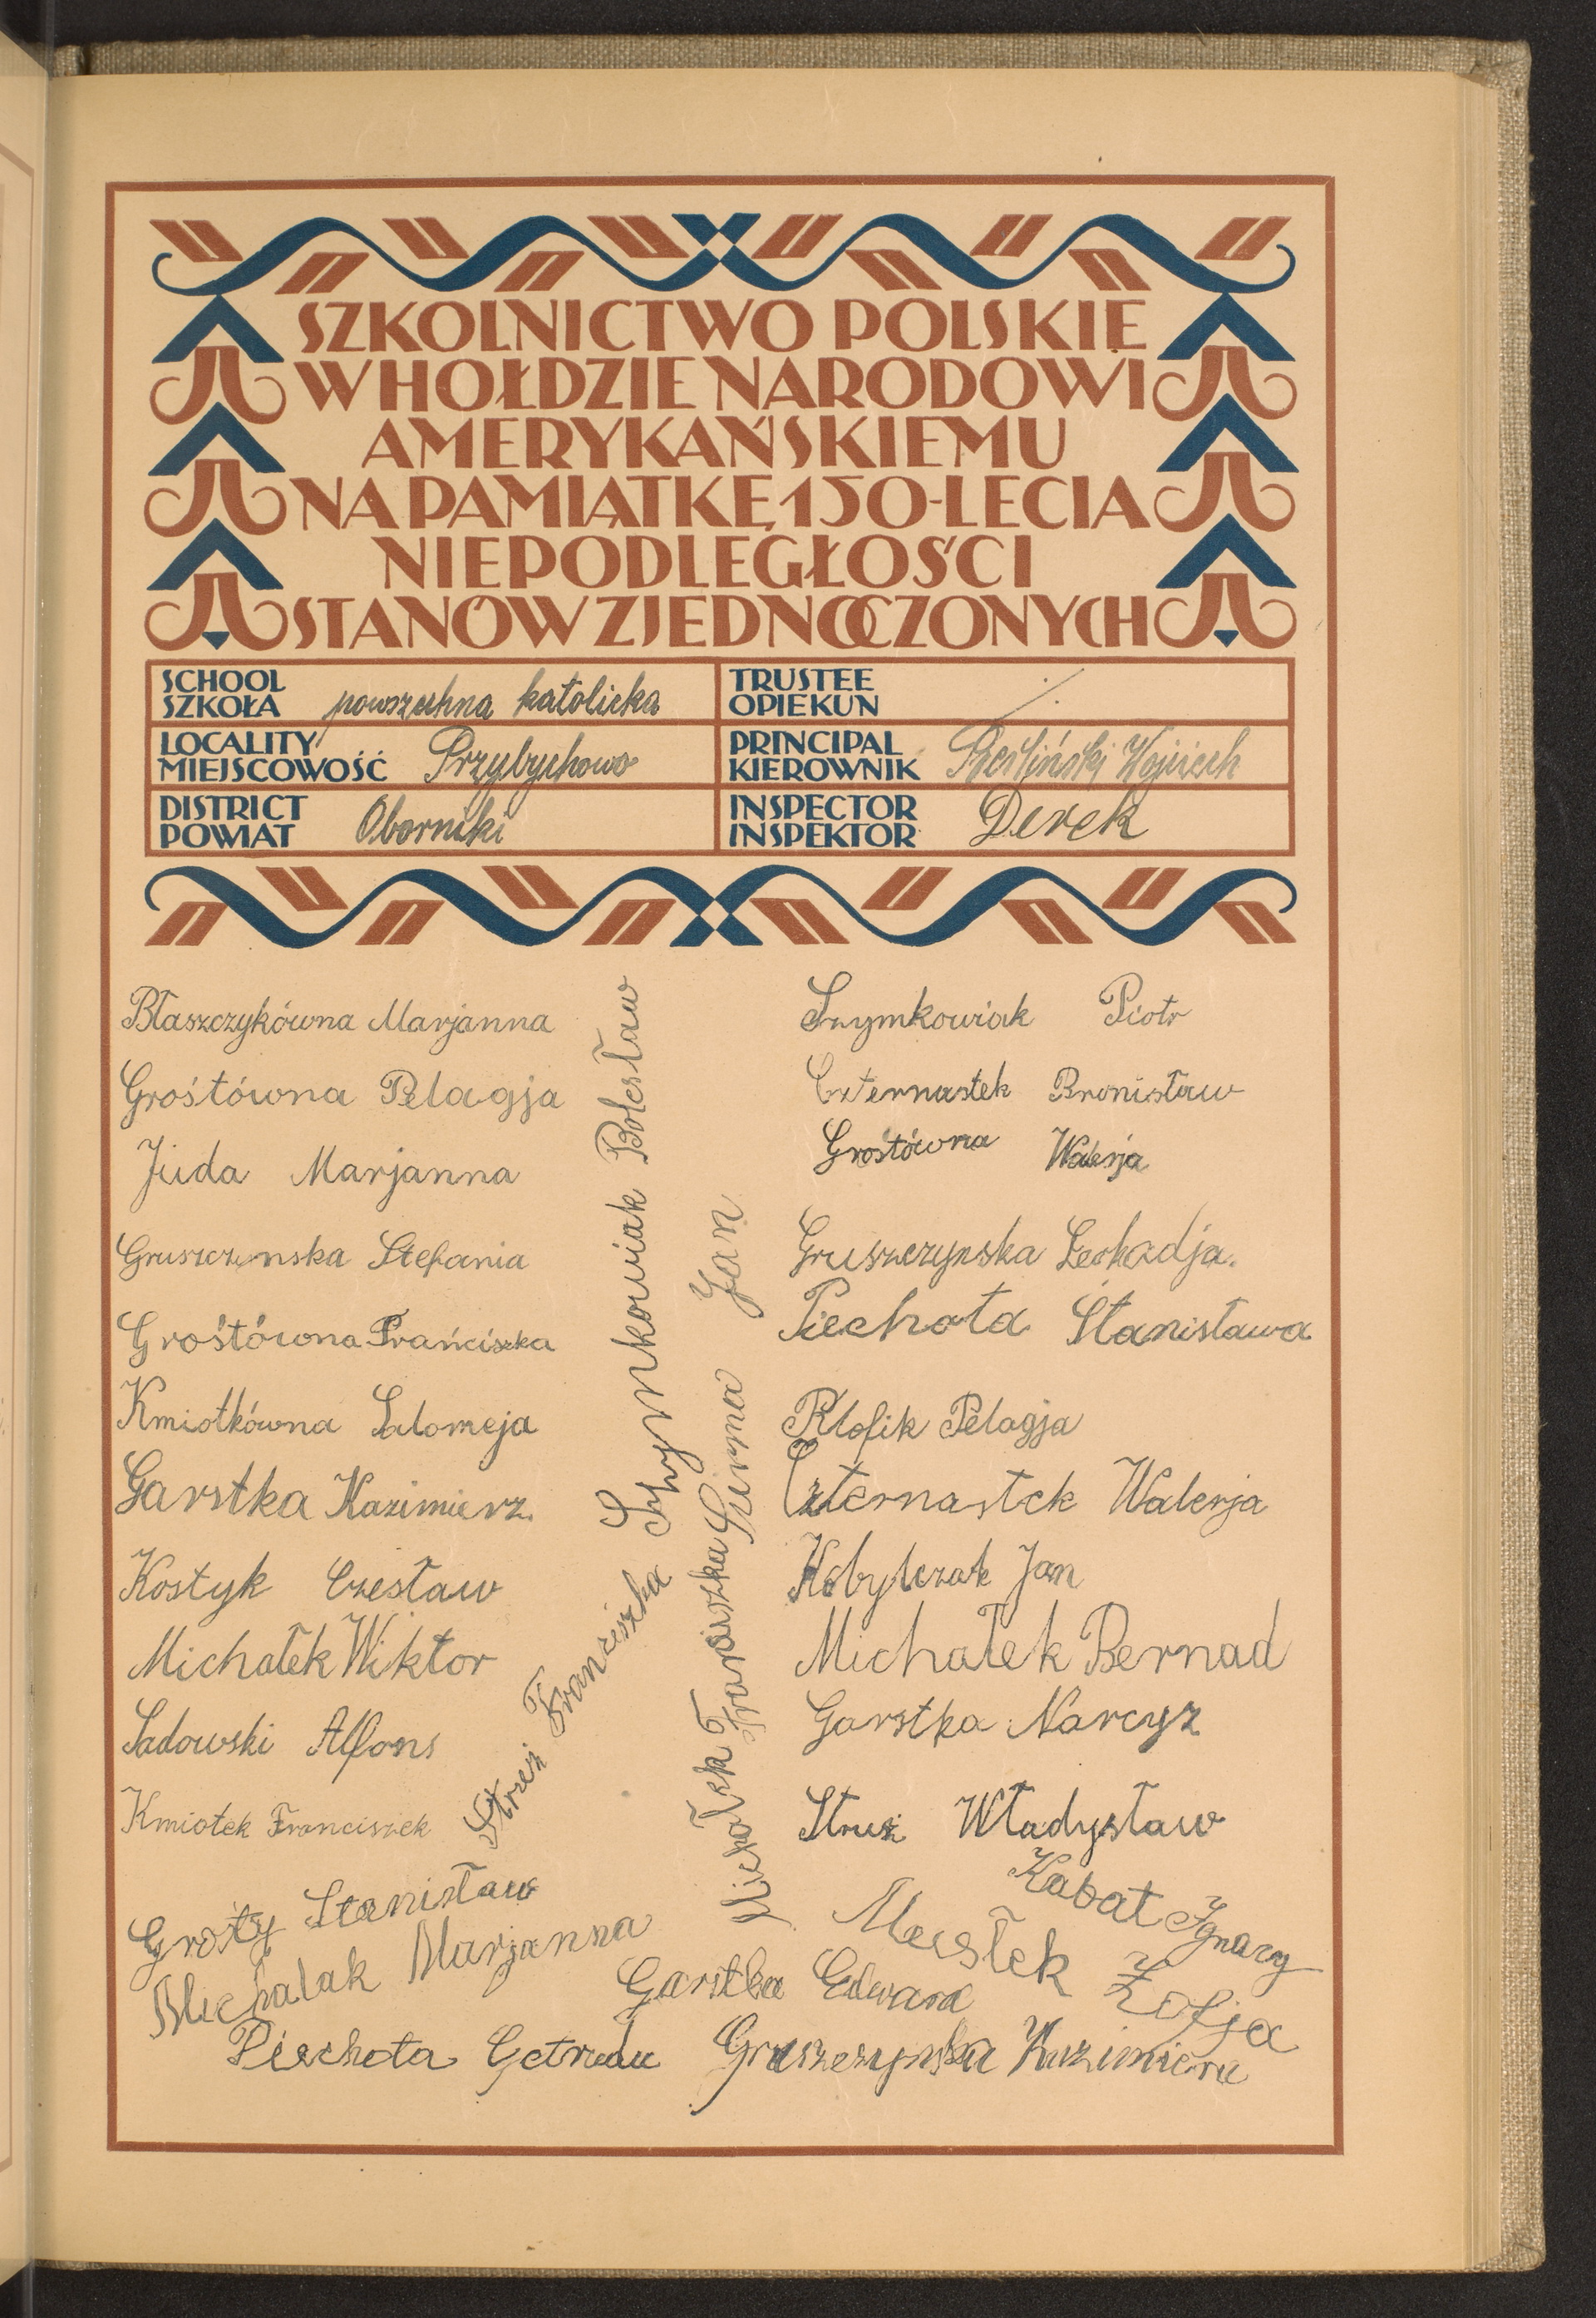 SZKOLNICTWO POLSKIE
W HOŁDZIE NARODOWI
AMERYKAŃSKIEMU
NA PAMIĄTKĘ 150-LECIA
NIEPODLEGŁOŚCI
STANÓW ZJEDNOCZONYCH
SCHOOL
SZKOŁA powszechna katolicka
TRUSTEE
OPIEKUN
LOCALITY
MIEJSCOWOŚĆ Przybychowo
PRINCIPAL
KIEROWNIK Wojciech
DISTRICT
POWIAT Oborniki
INSPECTOR
INSPEKTOR Derek
Błaszczykówna Marjanna
Grośtówna Pelagja
Juda Marjanna
Gruszczynska Stefania
Grośtówna Frańciszka
Kmiotkówna Salomeja
Garstka Kazimierz.
Kostyk Czesław
Michałek Wiktor
Sadowski Alfons
Kmiotek Franciszek
Grośty Stanisław
Michalak Marjanna
Piechota Getruda
Szymkowiak Bolesław
Struż Franciszka
Surma Jan
Michałek Franciszka
Szymkowiak Piotr
Czternastek Bronisław
Grośtówna Walerja
Gruszczynska Leokadja.
Piechota Stanisława
Klofik Pelagja
Czternastek Walerja
Kobylczak Jan
Michałek Bernad
Garstka Narcyz
Struż Władysław
Kabat Ignacy
Zofja
Garstka Edward
Gruszczynska Kazimiera